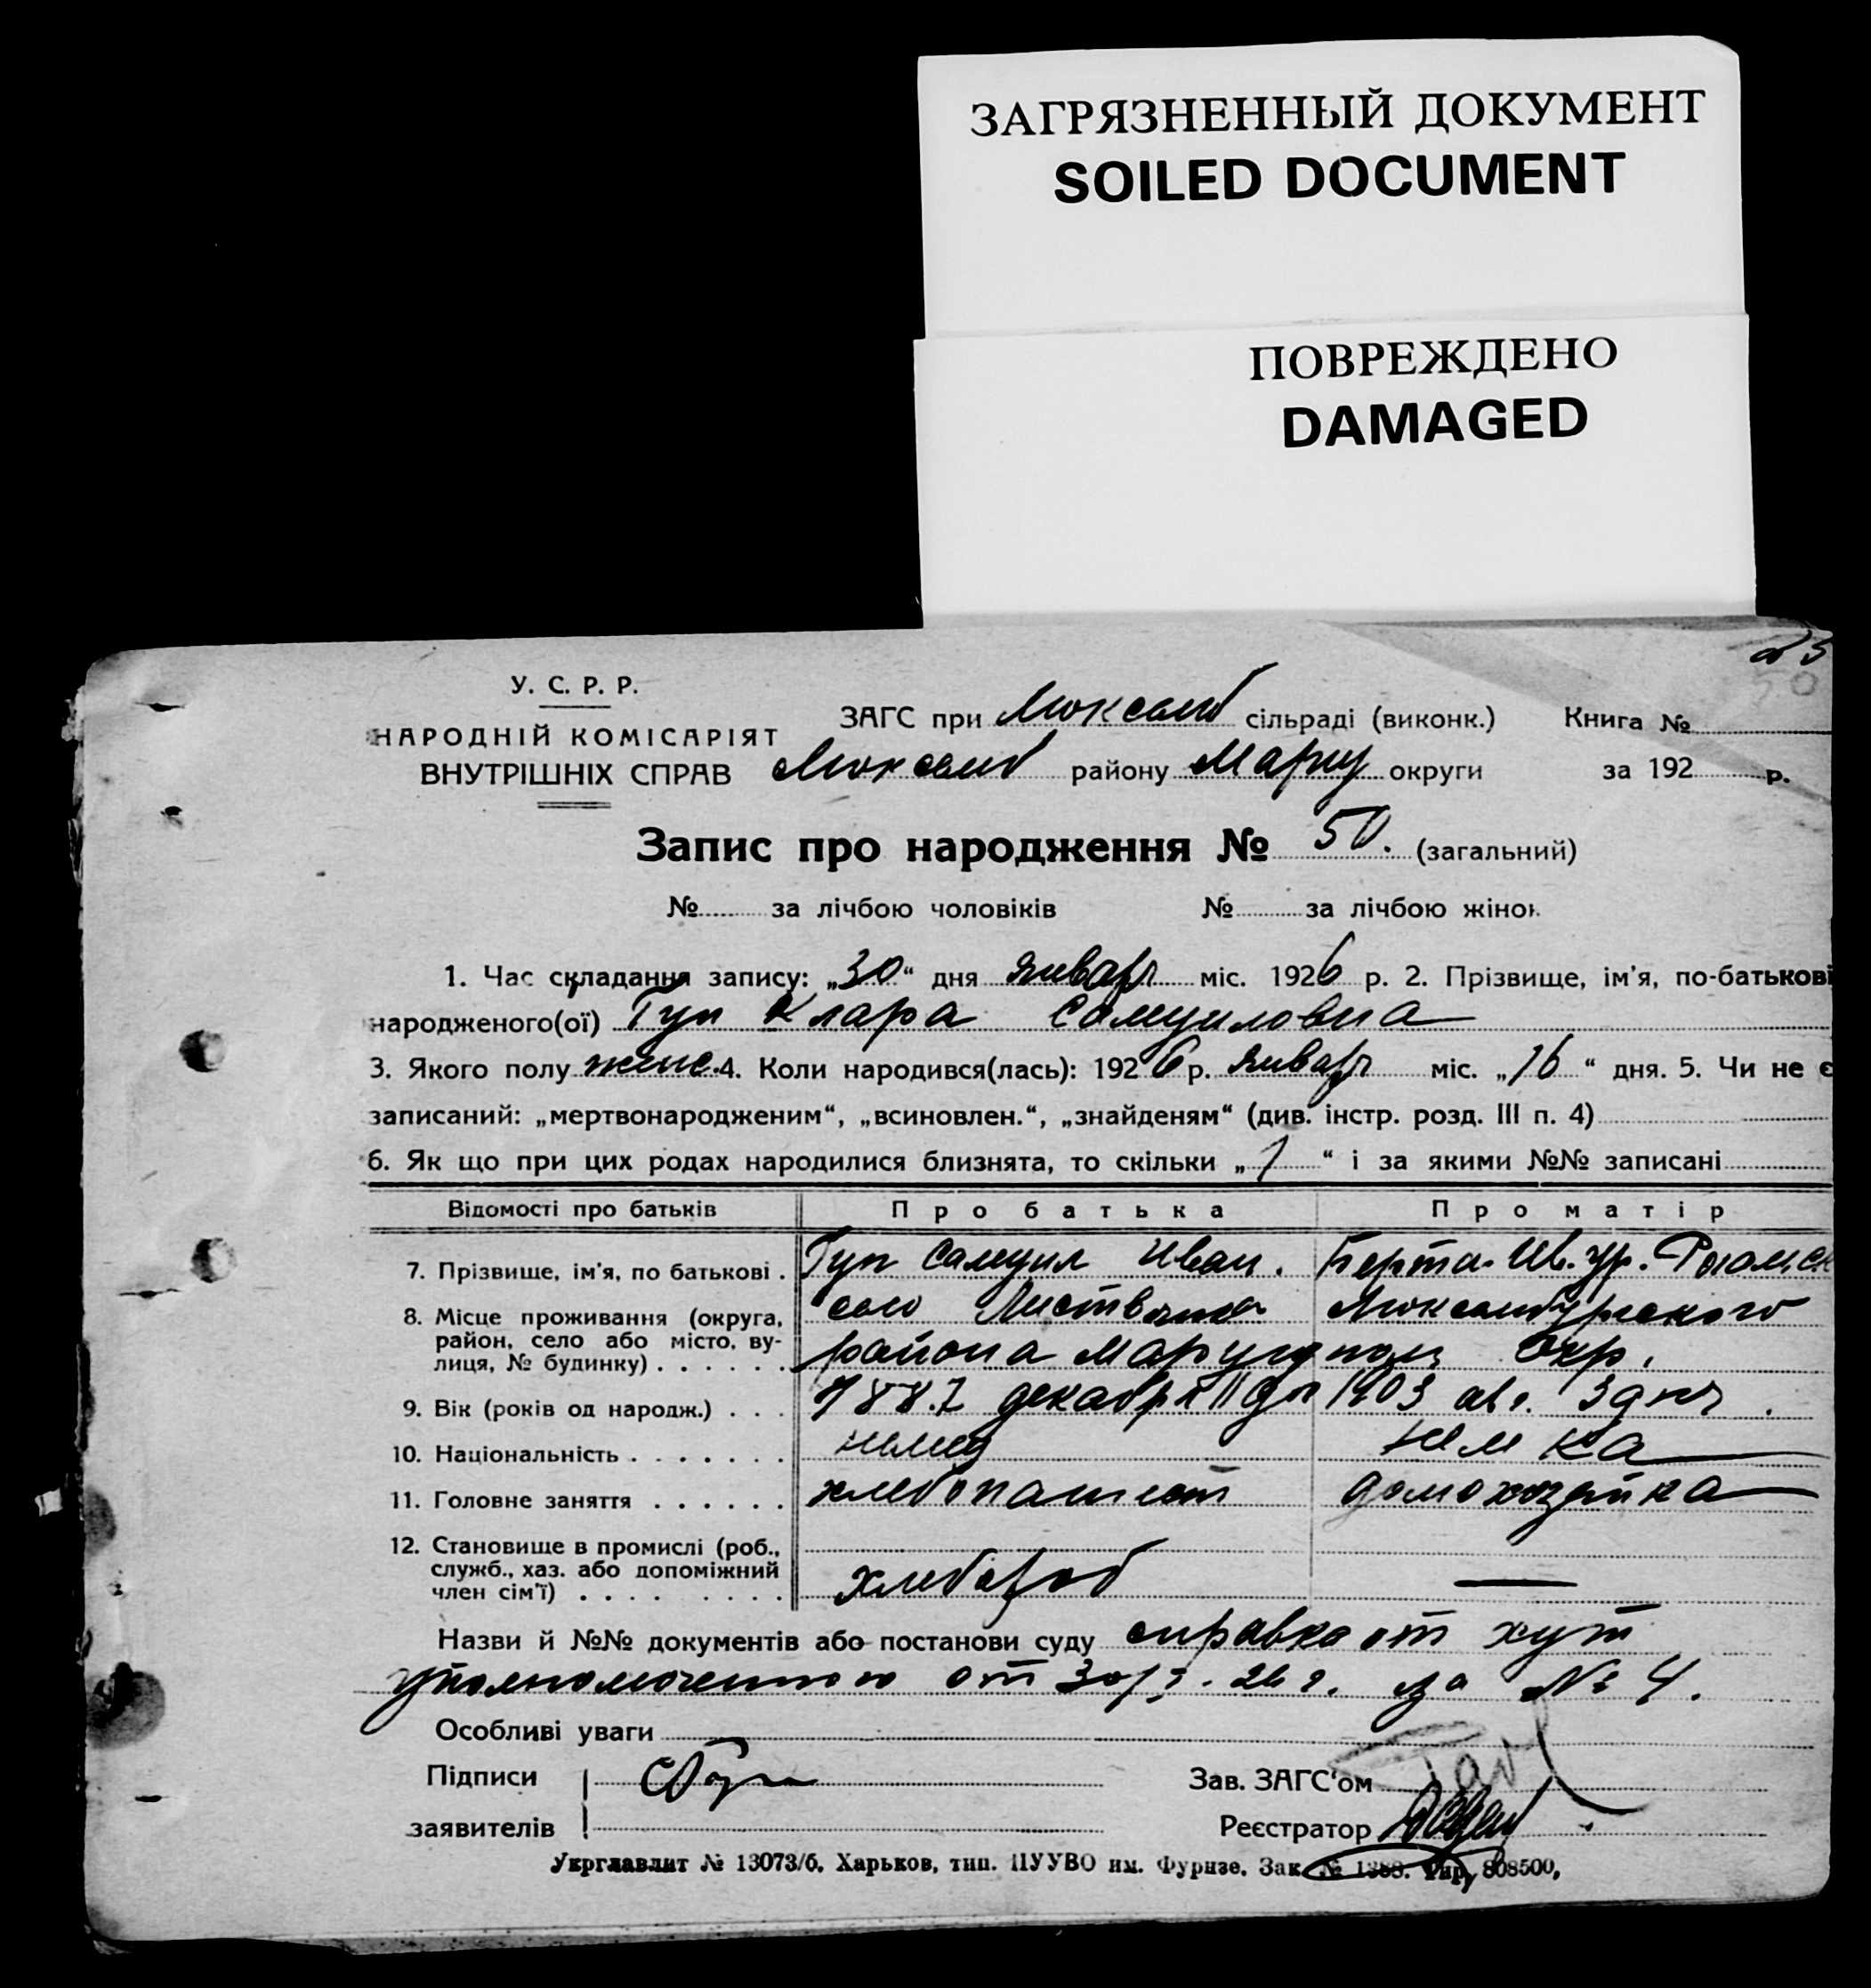 ЗАГРЯЗНЕННЫЙ ДОКУМЕНТ
SOILED DOCUMENT
ПОВРЕЖДЕНО
DAMAGED
У. С. Р. Р.
НАРОДНІЙ КОМІСАРІЯТ
ВНУТРІШНІХ СПРАВ
ЗАГС при Люксемб сільраді (виконк.) Книга №
Люксемб району Мариу округи за 192 р.
Запис про народження № 50. (загальний)
№ за лічбою чоловіків № за лічбою жінок
1. Час складання запису: „30“ дня январ міс. 1926 р. 2. Прізвище, ім'я, по-батькові
народженого(ої) Гуп Клара Самуиловна
3. Якого полу женс. 4. Коли народився(лась): 1926 р. январ міс. „16“ дня. 5. Чи не є
записаний: „мертвонародженим“, „всиновлен.“, „знайденям“ (див. інстр. розд. III п. 4)
6. Як що при цих родах народилися близнята, то скільки „1“ і за якими №№ записані
Відомості про батьків Про батька Про матір
7. Прізвище, ім'я, по батькові . Гуп Самуил Иван. Берта Ив. ур.
8. Місце проживання (округа, район, село або місто, вулиця, № будинку) . . . . . .
село Люксембургского
района Мариупол Окр.
9. Вік (років од народж.) . . . 1887 декабря 11 дн 1903 ав. 3 дня.
10. Національність . . . . . . . немец немка
11. Головне заняття . . . . . . хлебопашест домохозяйка
12. Становище в промислі (роб., служб., хаз. або допоміжний член сім'ї) . . . . . . . . хлебороб —
Назви й №№ документів або постанови суду справка от хут
уполномоченного от 30/I. 26 г. за № 4.
Особливі уваги
Підписи
заявителів
Зав. ЗАГС'ом
Реєстратор
Укрглавлит № 13073/б. Харьков, тип. ПУУВО им. Фурнзе. Зак. № 1388. Тир, 808500,